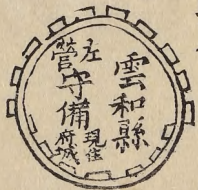 雲和縣
左營守備現住府城